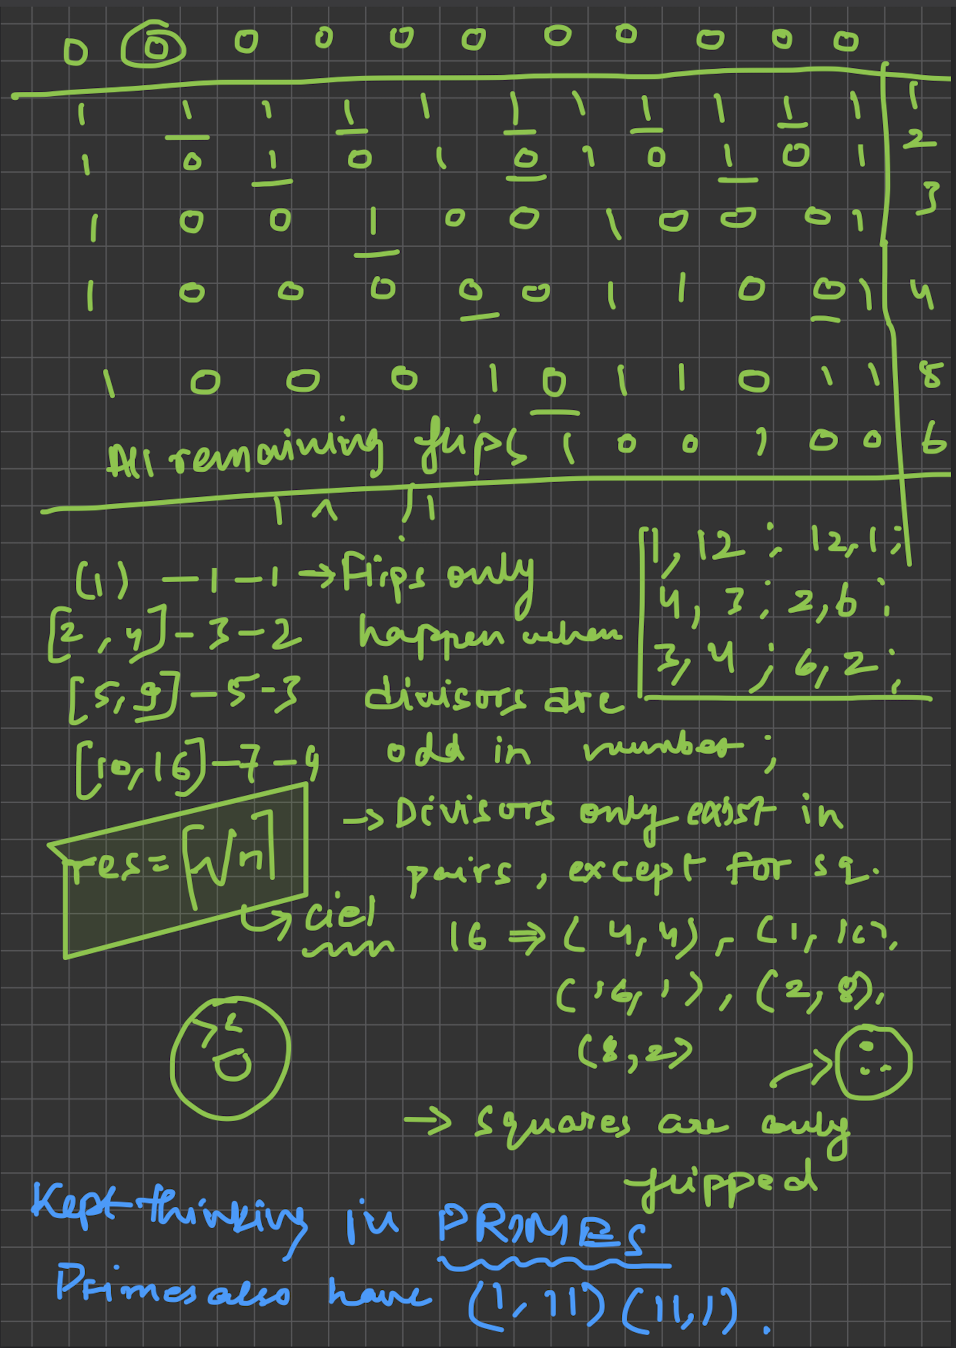 0 0 0 0 0 0 0 0 0 0 0
1 1 1 1 1 1 1 1 1 1 1 | 1
1 0 1 0 1 0 1 0 1 0 1 | 2
1 0 0 1 0 0 1 0 0 0 1 | 3
1 0 0 0 0 0 1 1 0 0 1 | 4
1 0 0 0 1 0 1 1 0 1 1 | 8
All remaining flips 1 0 0 1 0 0 | 6
(1) - 1 - 1 → Flips only
[2, 4] - 3 - 2 happen when
[5, 9] - 5 - 3 divisors are
[10, 16] - 7 - 4 odd in number;
1, 12 ; 12, 1 ;
4, 3 ; 2, 6 ;
3, 4 ; 6, 2 ;
→ Divisors only exist in
pairs, except for sq.
res = ⌈√n⌉
↳ ciel
16 ⇒ (4, 4), (1, 16),
(16, 1), (2, 8),
(8, 2)
→ squares are only
flipped
Kept thinking in PRIMES
Primes also have (1, 11) (11, 1).